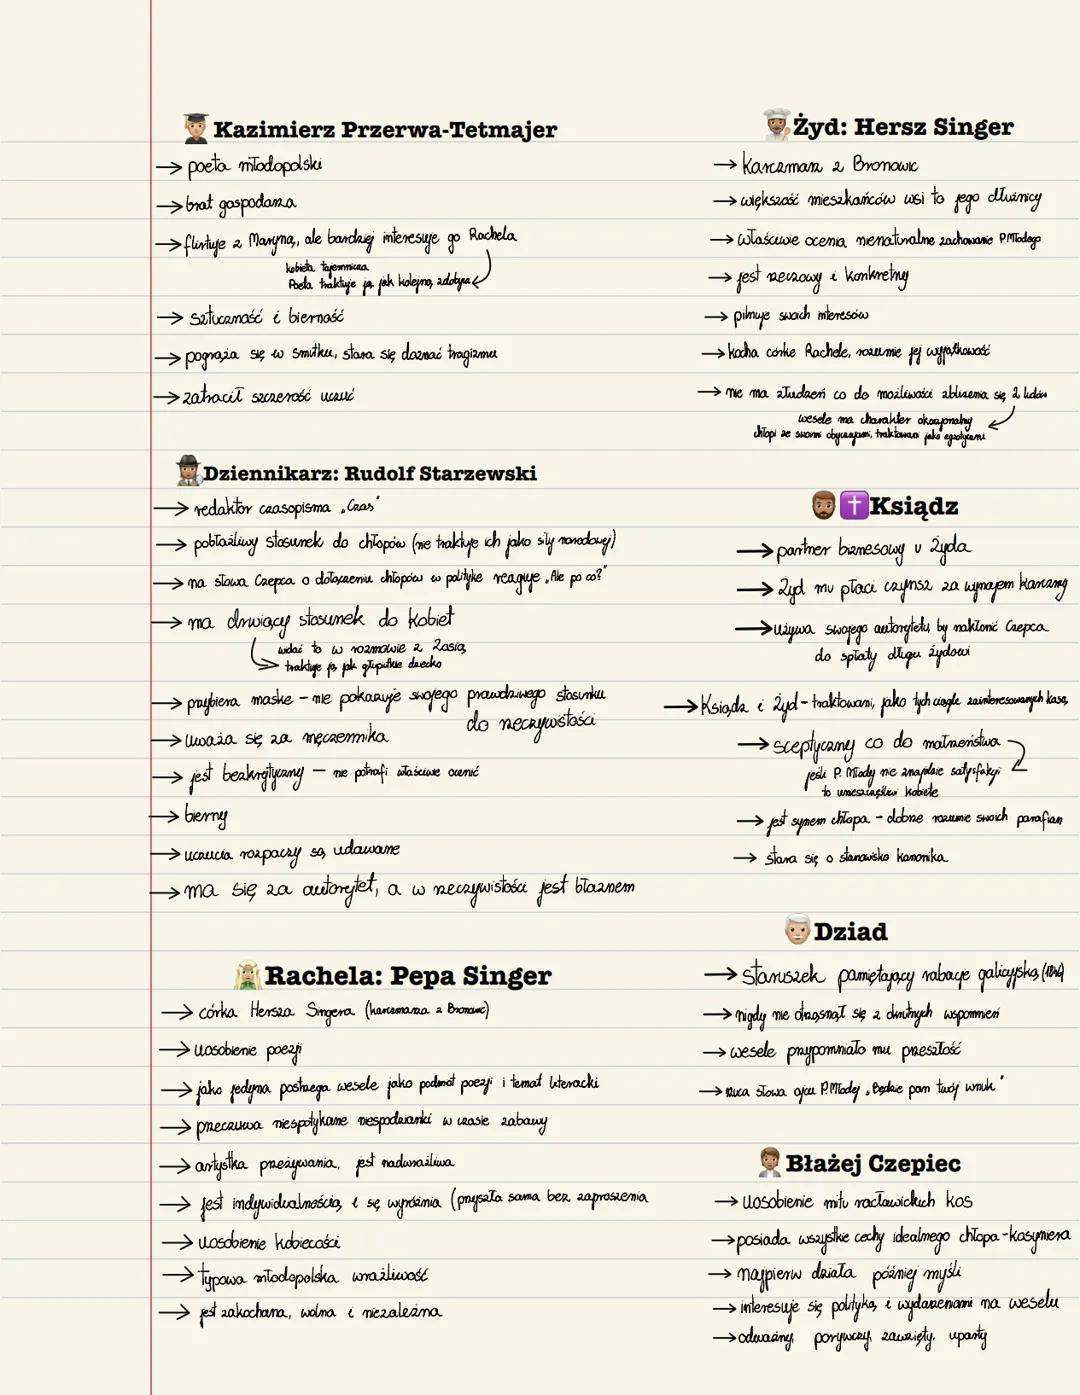 Kazimierz Przerwa-Tetmajer
→ poeta młodopolski
→ brat gospodarza
→ flirtuje z Maryną, ale bardziej interesuje go Rachela
kobieta tajemnicza
Poeta traktuje ją jak kolejną zdobycz
→ sztuczność i bierność
→ pogrąża się w smutku, stara się doznać tragizmu
→ zatracił szczerość uczuć
Dziennikarz: Rudolf Starzewski
→ redaktor czasopisma „Czas"
→ pobłażliwy stosunek do chłopów (nie traktuje ich jako siły narodowej)
→ na słowa Czepca o dołączeniu chłopów w politykę reaguje „Ale po co?"
→ ma drwiący stosunek do kobiet
widać to w rozmowie z Zosią,
traktuje ją jak głupiutkie dziecko
→ przybiera maskę – nie pokazuje swojego prawdziwego stosunku
do rzeczywistości
→ uważa się za męczennika
→ jest bezkrytyczny – nie potrafi właściwie ocenić
→ bierny
→ uczucia rozpaczy są udawane
→ ma się za autorytet, a w rzeczywistości jest błaznem
Rachela: Pepa Singer
→ córka Hersza Singera (karczmarza z Bronowic)
→ uosobienie poezji
→ jako jedyna postrzega wesele jako podmiot poezji i temat literacki
→ przeczuwa niespotykane niespodzianki w czasie zabawy
→ artystka przeżywania, jest nadwrażliwa
→ jest indywidualnością i się wyróżnia (przyszła sama bez zaproszenia
→ uosobienie kobiecości
→ typowa młodopolska wrażliwość
→ jest zakochana, wolna i niezależna
Żyd: Hersz Singer
→ Karczmarz z Bronowic
→ większość mieszkańców wsi to jego dłużnicy
→ właściwie ocenia nienaturalne zachowanie P.Młodego
→ jest rzeczowy i konkretny
→ pilnuje swoich interesów
→ kocha córkę Rachelę, rozumie jej wyjątkowość
→ nie ma złudzeń co do możliwości zbliżenia się 2 ludów
wesele ma charakter okazjonalny
chłopi ze swoimi obyczajami, traktowani jako egzotyczni
Ksiądz
→ partner biznesowy u Żyda
→ Żyd mu płaci czynsz za wynajem karczmy
→ używa swojego autorytetu, by nakłonić Czepca
do spłaty długu żydowi
→ Ksiądz i Żyd – traktowani, jako tych ciągle zainteresowanych kasą
→ sceptyczny co do małżeństwa
jeśli P. Młody nie znajdzie satysfakcji
to unieszczęśliwi kobietę
→ jest synem chłopa – dobrze rozumie swoich parafian
→ stara się o stanowisko kanonika
Dziad
→ staruszek pamiętający rabację galicyjską (1846)
→ nigdy nie otrząsnął się z okrutnych wspomnień
→ wesele przypomniało mu przeszłość
→ rzuca słowa ojcu P.Młodej „Będzie pan twój wnuk"
Błażej Czepiec
→ uosobienie mitu racławickich kos
→ posiada wszystkie cechy idealnego chłopa-kosyniera
→ najpierw działa później myśli
→ interesuje się polityką i wydarzeniami na weselu
→ odważny, porywczy, zawzięty, uparty